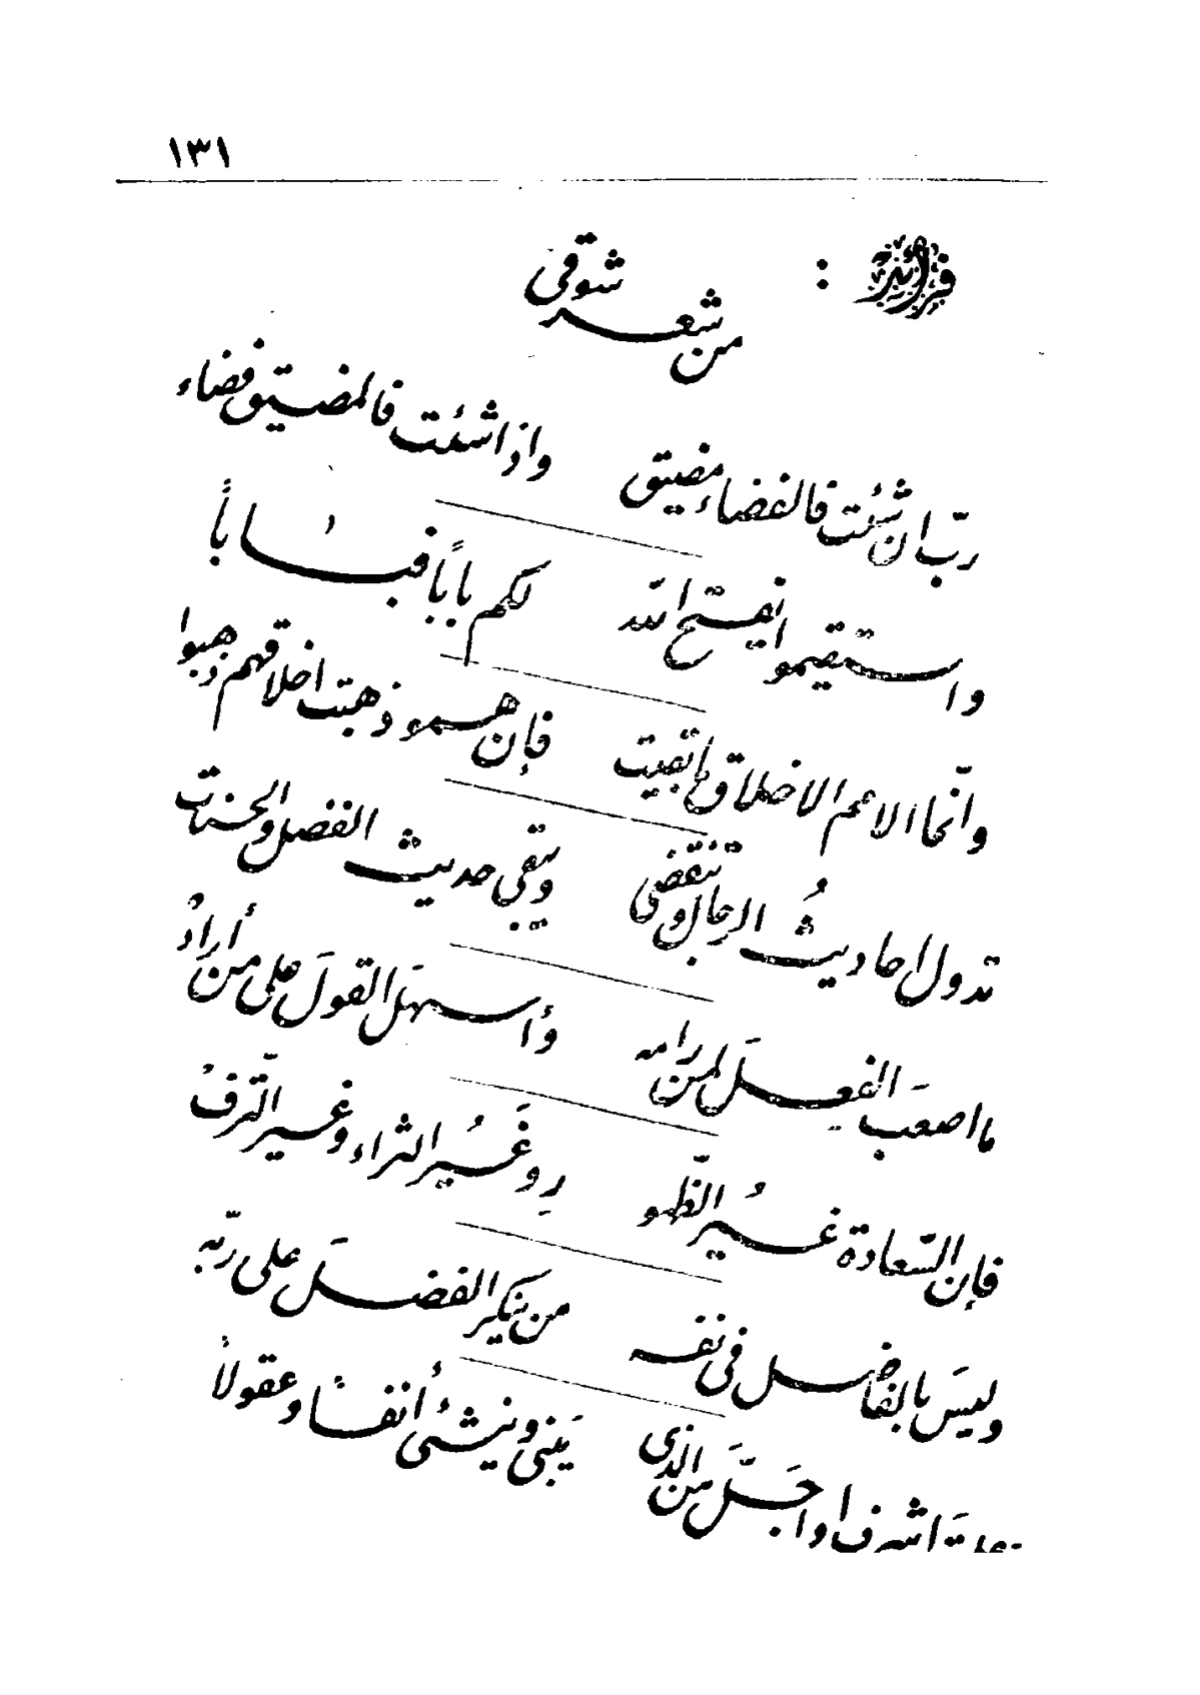 ١٣١
فرائد :
من شعر شوقى
ربّ ان شئت فالفضاء مضيق واذا شئت فالمضيق فضاء
واستقيموا يفتح الله لكم بابًا فبابًا
وانّما الامم الاخلاق ما بقيت فإن همو ذهبت اخلاقهم ذهبوا
تدول احاديثُ الرجال وتنقضى ويبقى حديث الفضل والحسنات
ما اصعبَ الفعلَ لمن رامه وأسهلَ القولَ على من أرادْ
فإن السّعادة غيرُ الظّهو رِ وغَيرُ الثراء وغير التّرفْ
وليسَ بالفاضل فى نفسه من ينكر الفضلَ على ربّه
اشرف او اجَلَّ من الذى يَبنى وينشئ أنفسًا وعقولاً